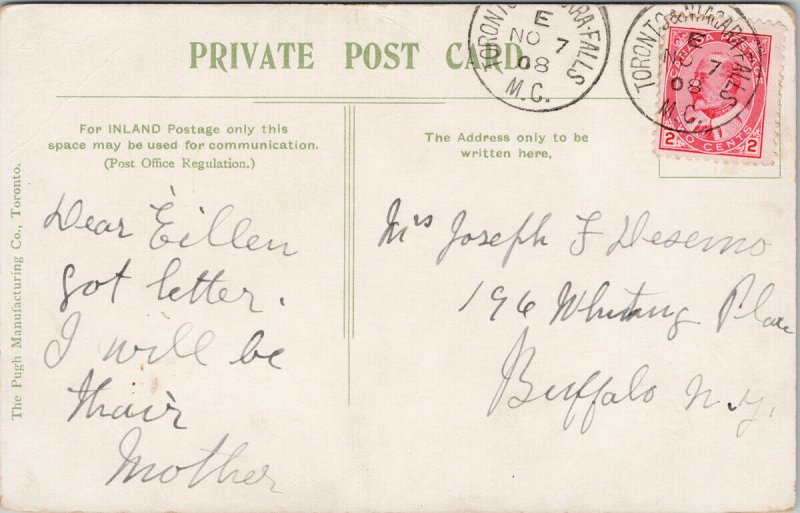 PRIVATE POST CARD
TORONTO & NIAGARA-FALLS
E
NO 7
08
M.C.
TORONTO & NIAGARA-FALLS
E
NO 7
08
M.C.
2 CENTS 2
For INLAND Postage only this
space may be used for communication.
(Post Office Regulation.)
The Address only to be
written here,
The Pugh Manufacturing Co., Toronto.
Dear Eillen
got letter.
I will be
thair
Mother
Mrs Joseph F Desermo
196 Whiting Place
Buffalo N.Y.